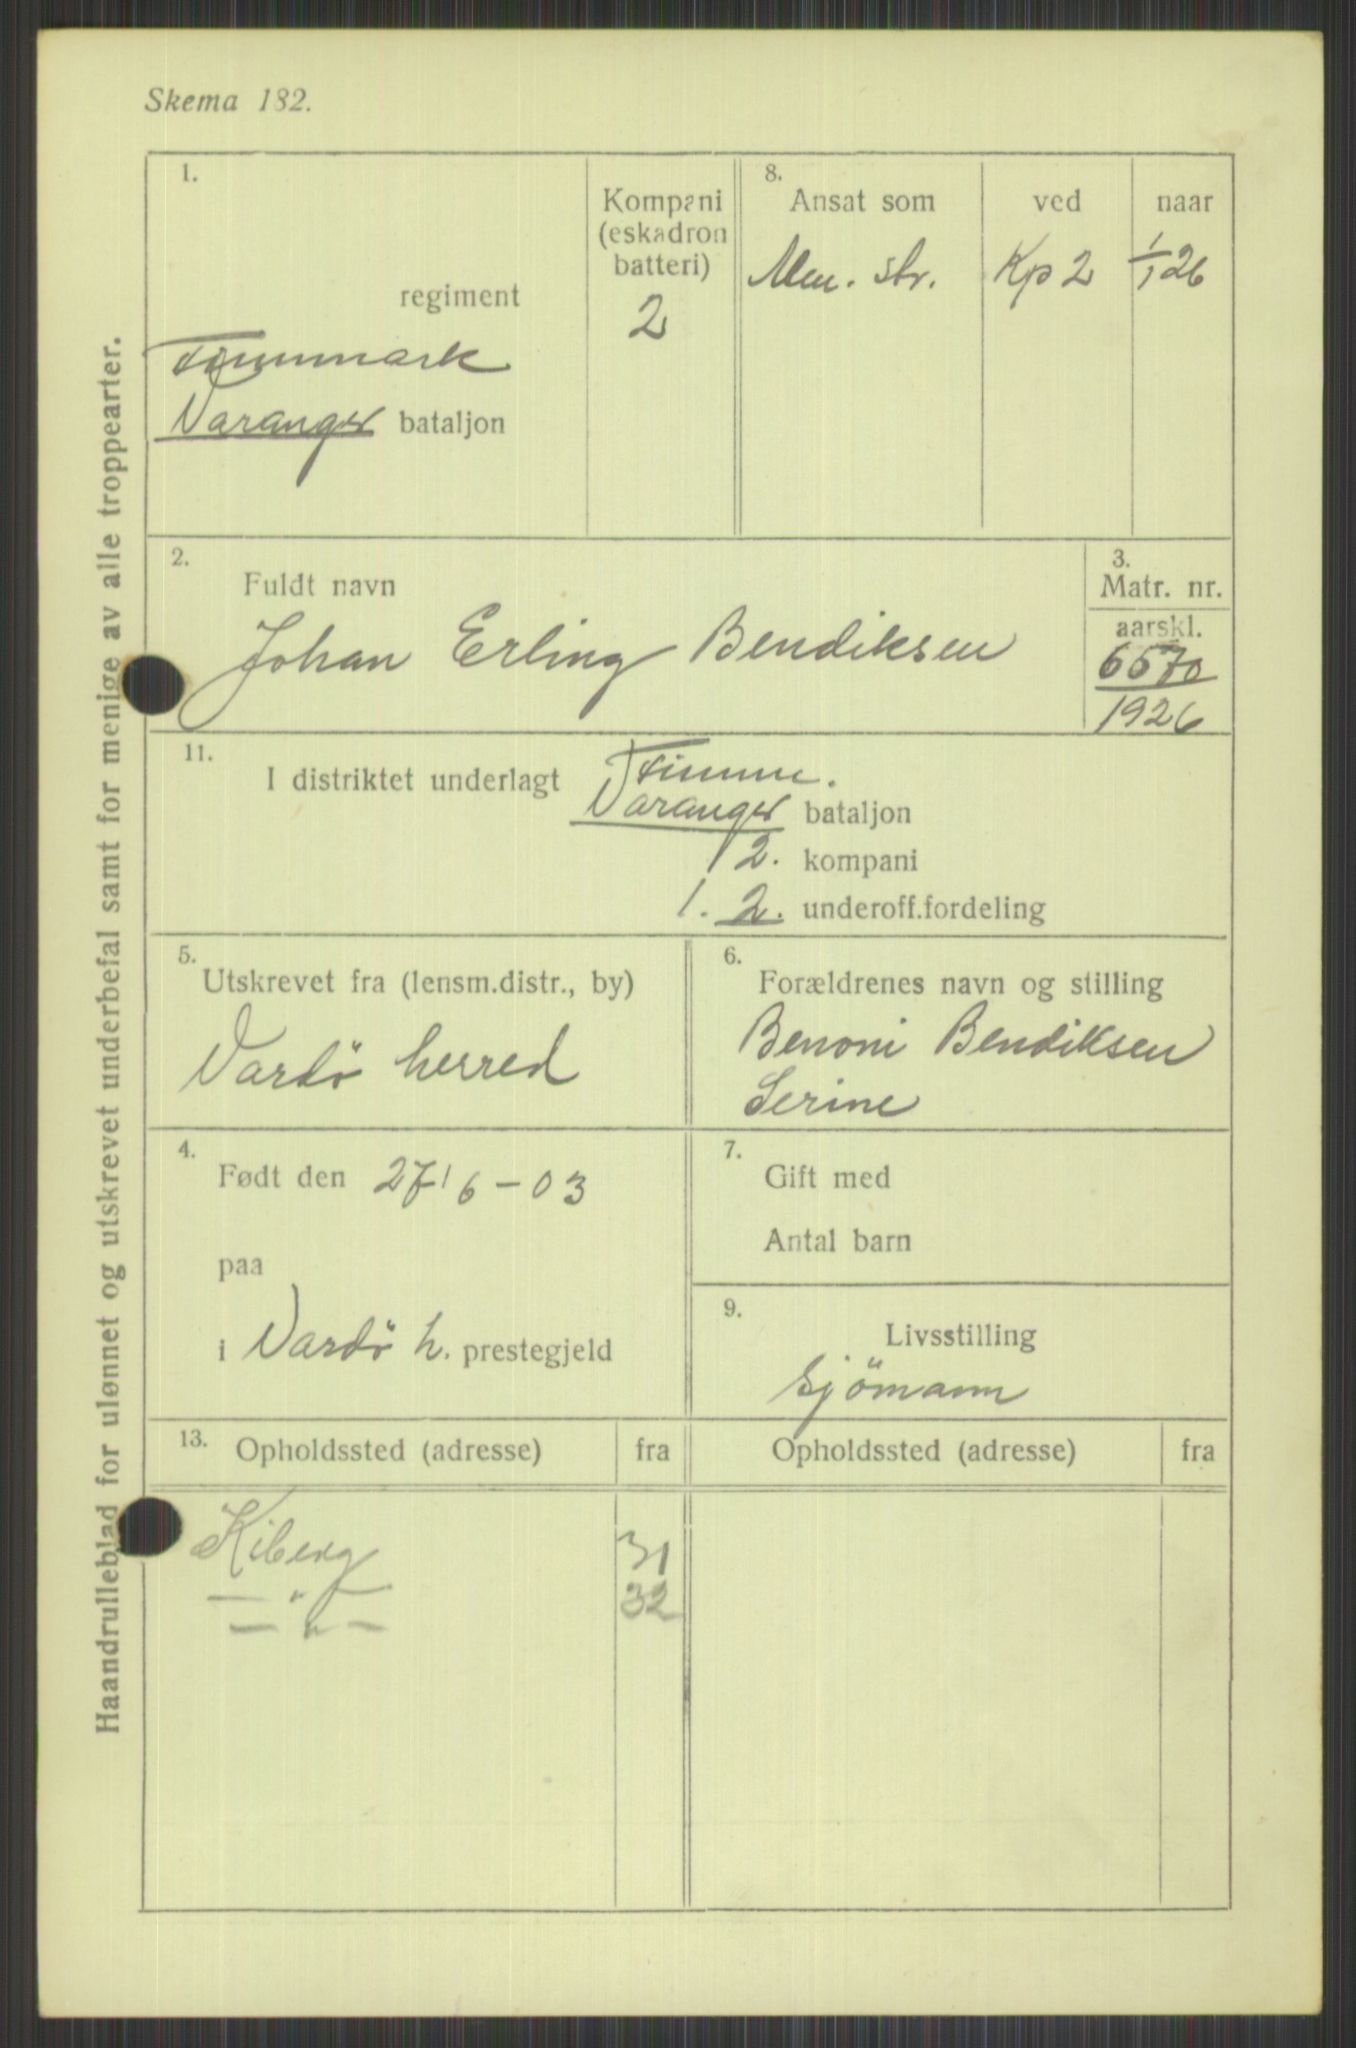 Skema 182.
Haandrulleblad for ulønnet og utskrevet underbefal samt for menige av alle troppearter.
1.
regiment
Finnmark
Varanger bataljon
Kompani
(eskadron
batteri)
2
8.
Ansat som
Men. str.
ved
Kp 2
naar
1/1 26
2.
Fuldt navn
Johan Erling Bendiksen
3.
Matr. nr.
aarskl.
6670
1926
11.
I distriktet underlagt
Finnm.
Varanger bataljon
2. kompani
1. 2. underoff.fordeling
5.
Utskrevet fra (lensm.distr., by)
Vardö herred
6.
Forældrenes navn og stilling
Benoni Bendiksen
Serine
4.
Født den 27/6-03
paa
i Vardö h. prestegjeld
7.
Gift med
Antal barn
9.
Livsstilling
Sjömann
13.
Opholdssted (adresse) fra
Opholdssted (adresse) fra
Kiberg 31
— " — 32
— " —